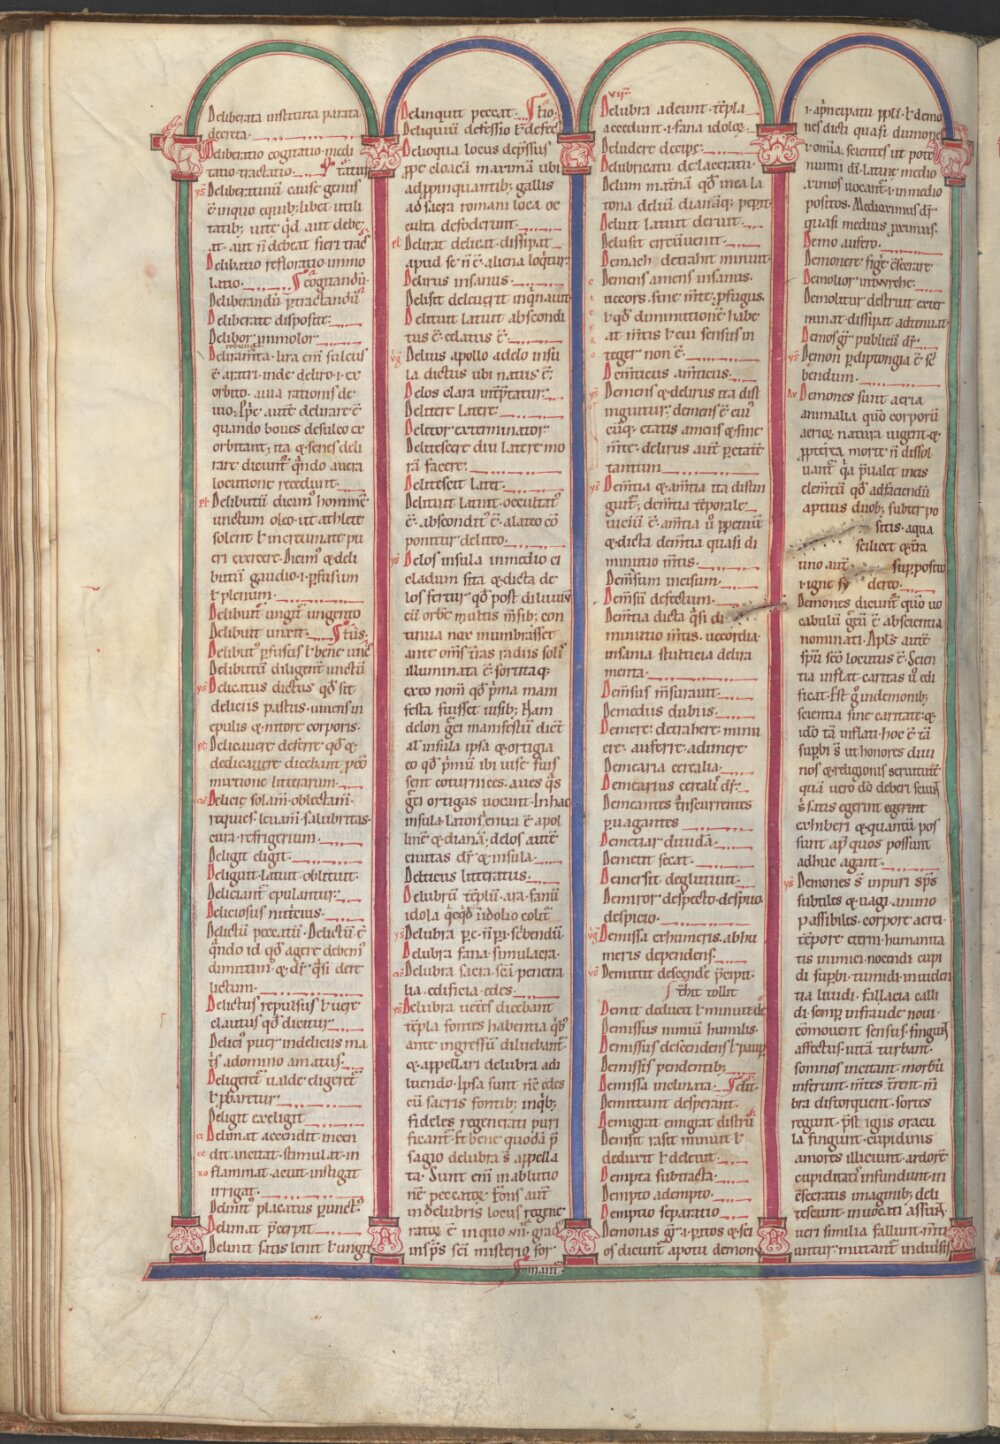 Deliberata instituta parata
decreta.
Deliberatio cogitatio medi
tatio tractatio.
Deliberatiuũ cause genus
ẽ inquo equib; libet utili
tatib; uite qd aut debe
at. aut ñ debeat fieri
Delibatio refloratio immo
latio. cogitandũ.
Deliberandũ ptractandũ
Deliberate disposite.
Delibor immolor
lira eni sulcus
ẽ aratri. inde deliro .i. ex
orbito. a uia rationis de
uio.
quando boues desulco ex
orbitant. ita & senes deli
rare dicunt qndo auera
locutione recedunt.
Delibutũ dicim hominẽ
unctum oleo. ut athlete
solent l incerumate pu
eri exercere. Dicim & deli
butũ gaudio .i. pfusum
l plenum.
Delibunt ungunt ungento
Delibuit unxit.
Delibut pfusus l bene unc
Delibutũ diligent unctũ
Delicatus dictus qd sit
deliciis pastus. uiuens in
epulis & nitore corporis.
Delicauere deferre qd &
dedicauere dicebant pco
mixtione litterarum.
Delicię solam. oblectam.
requies. leuam. salubritas.
cura. refrigerium.
Deligit eligit.
Deliguit latuit. obliuit.
Deliciant epulantur.
Deliciosus nitens.
Delictũ peccatũ. Delictũ ẽ
qndo id qd agere debem
dimittim. & dr qsi dere
lictum.
Delictus repulsus l uere
clautus qd dicitur.
puer indeliciis ma
adomino amatus.
Diligeret ualde eligeret
l pbaretur.
Deligit exeligit
Delimat accendit. incen
dit. incitat. stimulat. in
flammat. acuit. instigat
irrigat.
placatus punct
Delimat pcerpit
Delinit satis lenit l ungit
Delinquit peccat.
Deliquiũ defessio l defec
Delioqua locus dep̃ssus
ppe cloacã maximã ubi
adppinquantib; gallis
ad sacra romani loca oc
culta defoderunt.
Delirat delicat. dissipat
apud se ñ ẽ. aliena loqtur
Delirus insanus.
Delisit deleuerit. inqnauit
Delituit latuit. abscondi
tus ẽ. celatus ẽ.
Delius apollo adelo insu
la dictus ubi natus ẽ.
Delos clara interptatur.
Delitere latere.
Deletor exterminator
Delitescere diu latere mo
rã facere.
Delitescit latet.
Delituit latuit. occultat
ẽ. abscondit ẽ. alateo cõ
ponitur deliteo.
Delos insula inmedio ci
cladum sita & dicta de
los fertur qd post diluuiũ
cũ orbẽ multis msib; con
tinua nox inumbrasset
ante oms tras radiis soli
illuminata ẽ. sortita q;
exeo nom qd prima mani
festa fuisset uisib; Nam
delon gci manifestũ dict
at insula ipsa & ortigia
eo qd primũ ibi uise fuis
sent coturnices. aues qs
gci ortigas uocant. Inhac
insula latona enixa ẽ apol
linẽ & dianã; delos autẽ
ciuitas dr & insula.
Delticus litteratus.
Delubrũ templũ. ara. fanũ
idola
Delubra p.e. ñ p.i. scbendũ.
Delubra fana. simulacra.
Delubra sacra. scã. penetra
lia. edificia. edes.
Delubra ueteres dicebant
templa fontes habentia qb
ante ingressũ diluebant
& appellari delubra adi
luendo. Ipsa sunt nc edes
cũ sacris fontib; inqb;
fideles regenerati puri
ficant. & bene quodã p
sagio delubra s appella
ta. Sunt eni in ablutio
nẽ peccator. Fons aut
indelubris locus regene
rator ẽ in quo .vii. grad
insps sci misterio for
mant
Delubra adeunt. templa
accedunt .i. fana idolor.
Deludere decipe.
Dubricatũ delacerati.
Delum matnã qd mea la
tona deliũ dianãq; peperit
Deluit lauit deruit.
Delusit
Demach detraht. minuit
Demens amens. insanus.
uecors. sine mte. pfugus.
l qd diminutionẽ habe
at mtis l cui sensus in
teger non ẽ.
Demticus amticus.
Demens & delirus ita dist
inguitur; demens ẽ cui
cuq; etatis amens & sine
mte. delirus aut petatẽ
tantum.
Demtia & amtia ita distin
guit; demtia temporale
uiciũ ẽ. amtia u ppetuũ
& dicta demtia quasi di
minutio mtis.
Demsum incisum.
Demsũ defectum.
Demtia dicta qsi di
minutio mtis. uecordia.
insania stulticia delira
menta.
Demsus msurauit.
Demedius dubius.
Demere. detrahere. minu
ere. auferre. adimere
Demetaria cerealia.
Demetarius cereali dr.
Demeantes transcurrentes
puagantes
Demetiar diuidã.
Demetit secat.
Demersit deglutiuit.
Demiror despecto. despuo.
despicio.
Demissa exhumeris. abhu
meris dependens.
Demittit descende pcipit.
tollit
Demit deducit l minuit de
Demissus nimiũ humilis.
Demissus descendens l paup
Demissis pendentib;
Demissa inclinata.
Demittunt desperant.
Demigrat emigrat
Demisit rasit minuit l
deduxit l deleuit.
Dempta subtracta.
Dempto adempto.
Demptio separatio
Demonas gr .i. pitos & sci
os dicunt apotu demon
.i. apncipatu ppli. l demo
nes dicti quasi dumone
.i. omia scientes ut pote
numi dii. latine medio
ximos uocant .i. inmedio
positos. Medioximus dr
quasi medius pximus.
Demo aufero.
Demonere figt c̃sectare
Demolior inuertere.
Demolitur destruit. exter
minat. dissipat. adtenuat
Demosgr publicũ dr.
Demon pdiptongũ ẽ sc
bendum.
Demones sunt aeria
animalia quo corporũ
aerior natura uigent &
ppterea morte ñ dissol
uant qa pualet meis
elemtũ qd adfaciendũ
aptius duob; subter po
sitis. aqua
scilicet & tra
uno aut supposito
.i. igne sy dereo.
Demones dicunt quo uo
cabulũ gcũ ẽ abscientia
nominati. Apls aute
spũ scõ locutus ẽ. Scien
tia inflat. caritas u edi
ficat. Est g indemonib;
scientia sine caritate &
ido tã inflati. hoc ẽ tã
supbi s ut honores diui
nos & religionis seruitutẽ
quã uero dõ deberi sciunt
s satis egerint egerint
exhiberi & quantũ pos
sunt ap quos possunt
adhuc agant.
Demones s inpuri sps
subtiles & uagi. animo
passibiles. corpore aerei.
tempore eterni. humanita
tis inimici. nocendi cupi
di. supbi. tumidi. inuiden
tia liuidi. fallacia calli
di. semp infraude noui.
comouent sensus. fingunt
affectus. uitã turbant.
somnos inctant. morbũ
inferunt. mtes trent. m
bra distorquent. sortes
regunt. pst igiis oracu
la fingunt. cupidinis
amores illiciunt. ardorẽ
cupiditat infundunt. in
c̃secratis imaginib; deli
tescunt. inuocati assunt
ueri similia fallunt. mti
untur. mutant indiuisis